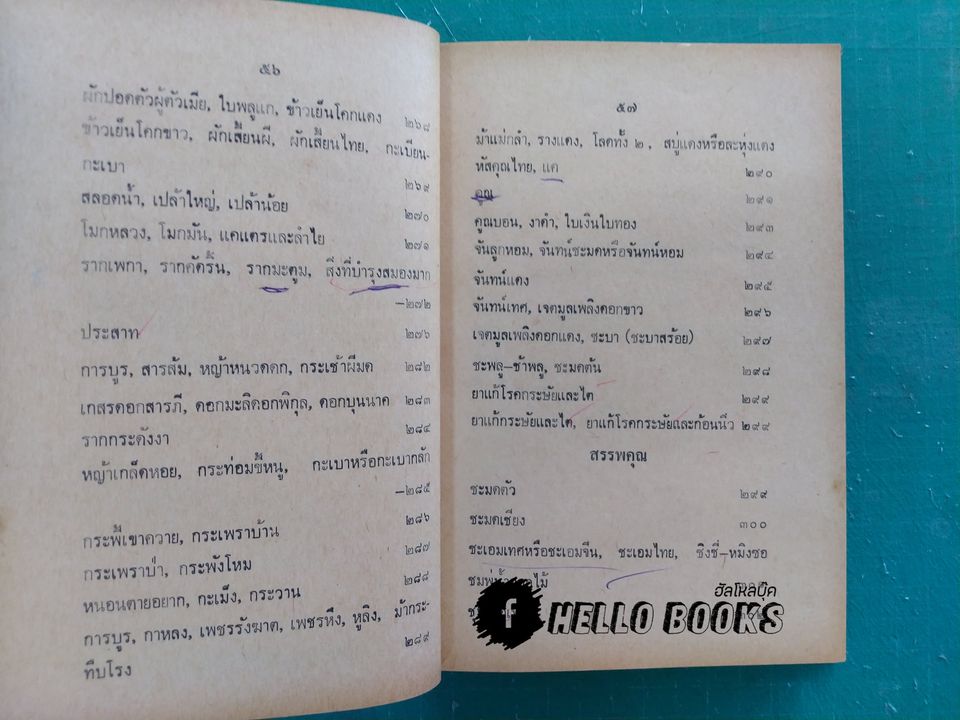 ๕๖
ผักปอดตัวผู้ตัวเมีย, ใบพลูแก, ข้าวเย็นโคกแดง ๒๖๘
ข้าวเย็นโคกขาว, ผักเสียนผี, ผักเสียนไทย, กะเบียน-
กะเบา ๒๖๙
สลอดน้ำ, เปล้าใหญ่, เปล้าน้อย ๒๗๐
โมกหลวง, โมกมัน, แคแตรและลำไย ๒๗๑
รากเพกา, รากคัดรั้น, รากมะตูม, สิ่งที่บำรุงสมองมาก
—๒๗๒
ประสาท ๒๗๖
การบูร, สารส้ม, หญ้าหนวดดก, กระเช้าผีมด ๒๘๒
เกสรดอกสารภี, ดอกมะลิดอกพิกุล, ดอกบุนนาค ๒๘๓
รากกระดังงา ๒๘๔
หญ้าเกล็ดหอย, กระท่อมขี้หนู, กะเบาหรือกะเบากลัก
—๒๘๕
กระพี้เขาควาย, กระเพราบ้าน ๒๘๖
กระเพราป่า, กระพังโหม ๒๘๗
หนอนตายอยาก, กะเม็ง, กระวาน ๒๘๘
การบูร, กาหลง, เพชรรังฆาต, เพชรหึง, หูลิง, ม้ากระ-
ทืบโรง ๒๘๙
๕๗
ม้าแม่กล่ำ, รางแดง, โลดทั้ง ๒, สบู่แดงหรือละหุ่งแดง
หัสคุณไทย, แค ๒๙๐
คูณ ๒๙๑
คูณบอน, งาดำ, ใบเงินใบทอง ๒๙๓
จันลูกหอม, จันทน์ชะมดหรือจันทน์หอม ๒๙๔
จันทน์แดง ๒๙๕
จันทน์เทศ, เจตมูลเพลิงดอกขาว ๒๙๖
เจตมูลเพลิงดอกแดง, ชะบา (ชะบาสร้อย) ๒๙๗
ชะพลู-ช้าพลู, ชะมดต้น ๒๙๘
ยาแก้โรคกระษัยและไต ๒๙๙
ยาแก้กระษัยและไต, ยาแก้โรคกระษัยและก้อนนิ่ว ๒๙๙
สรรพคุณ
ชะมดตัว ๒๙๙
ชะมดเชียง ๓๐๐
ชะเอมเทศหรือชะเอมจีน, ชะเอมไทย, ชิงชี่-หมิงซอ
ฮัลโหลบุ๊ค
f HELLO BOOKS